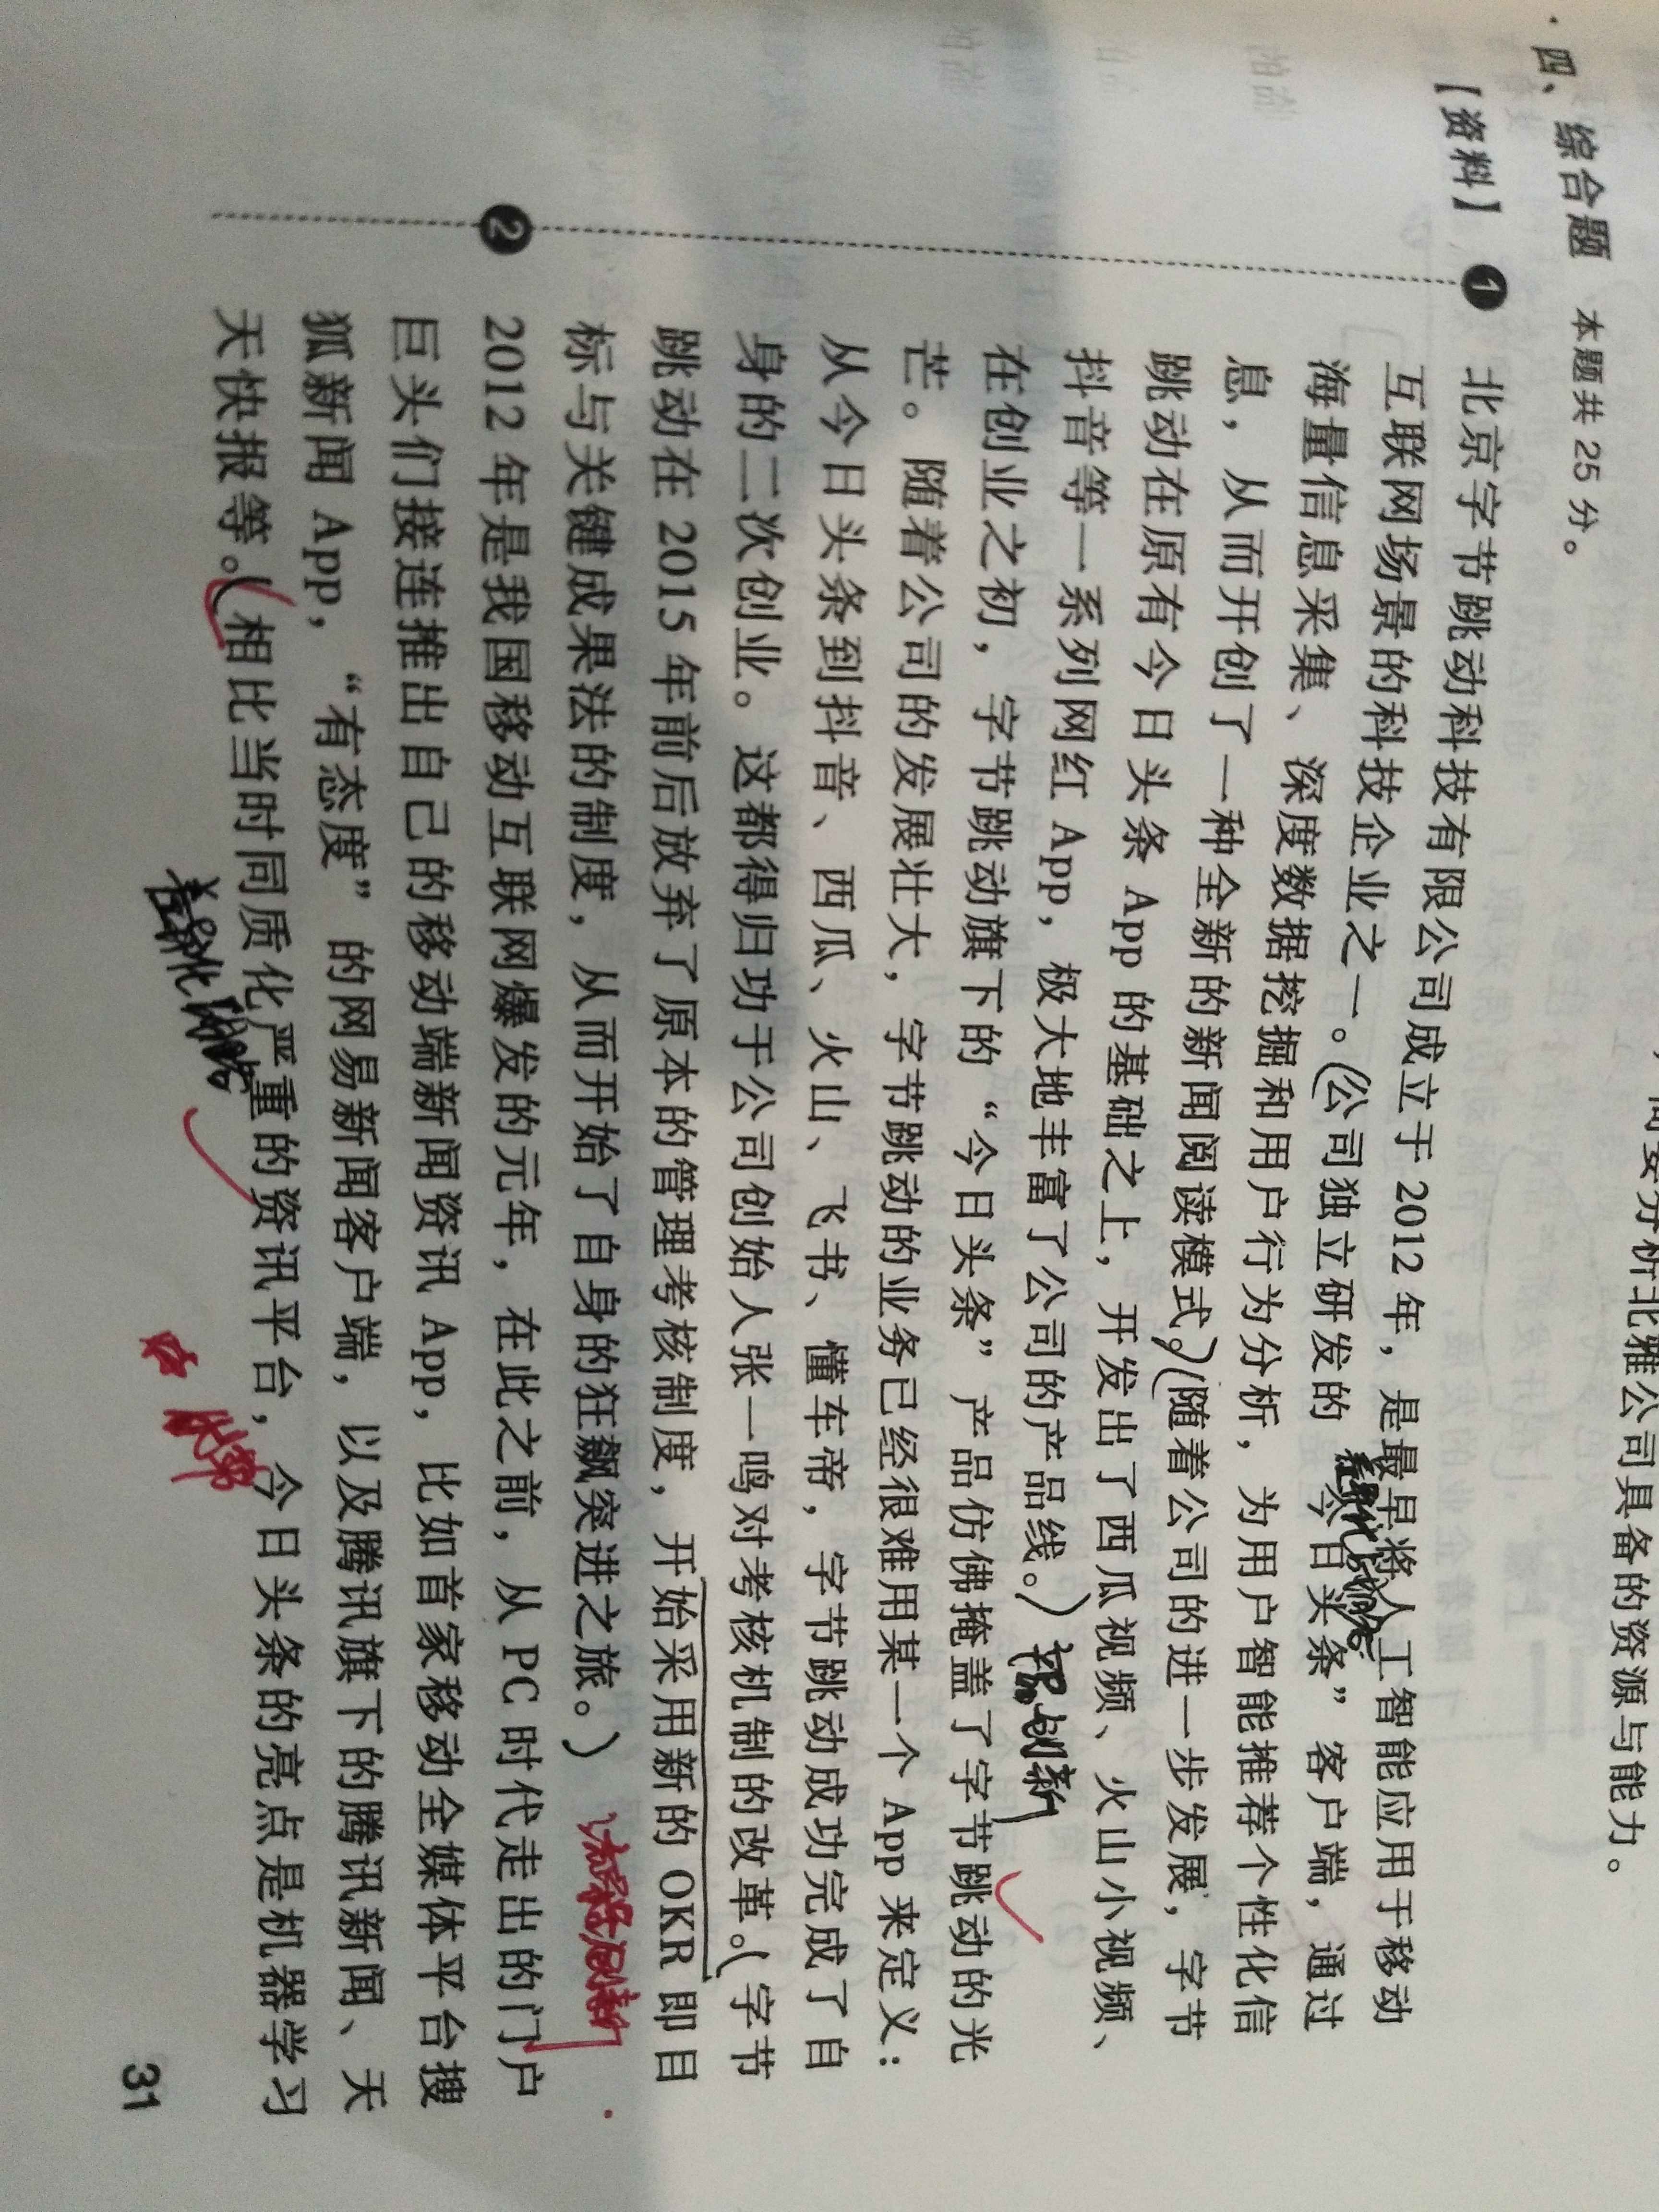 ，简要分析北雅公司具备的资源与能力。
四、综合题 本题共 25 分。
【资料】
1 北京字节跳动科技有限公司成立于 2012 年，是最早将人工智能应用于移动
互联网场景的科技企业之一。（公司独立研发的“今日头条”客户端，通过
海量信息采集、深度数据挖掘和用户行为分析，为用户智能推荐个性化信
息，从而开创了一种全新的新闻阅读模式。）（随着公司的进一步发展，字节
跳动在原有今日头条 App 的基础之上，开发出了西瓜视频、火山小视频、
抖音等一系列网红 App，极大地丰富了公司的产品线。）
在创业之初，字节跳动旗下的“今日头条”产品仿佛掩盖了字节跳动的光
芒。随着公司的发展壮大，字节跳动的业务已经很难用某一个 App 来定义：
从今日头条到抖音、西瓜、火山、飞书、懂车帝，字节跳动成功完成了自
身的二次创业。这都得归功于公司创始人张一鸣对考核机制的改革。（字节
跳动在 2015 年前后放弃了原本的管理考核制度，开始采用新的 OKR 即目
标与关键成果法的制度，从而开始了自身的狂飙突进之旅。）
2 2012 年是我国移动互联网爆发的元年，在此之前，从 PC 时代走出的门户
巨头们接连推出自己的移动端新闻资讯 App，比如首家移动全媒体平台搜
狐新闻 App，“有态度”的网易新闻客户端，以及腾讯旗下的腾讯新闻、天
天快报等。（相比当时同质化严重的资讯平台，今日头条的亮点是机器学习
31